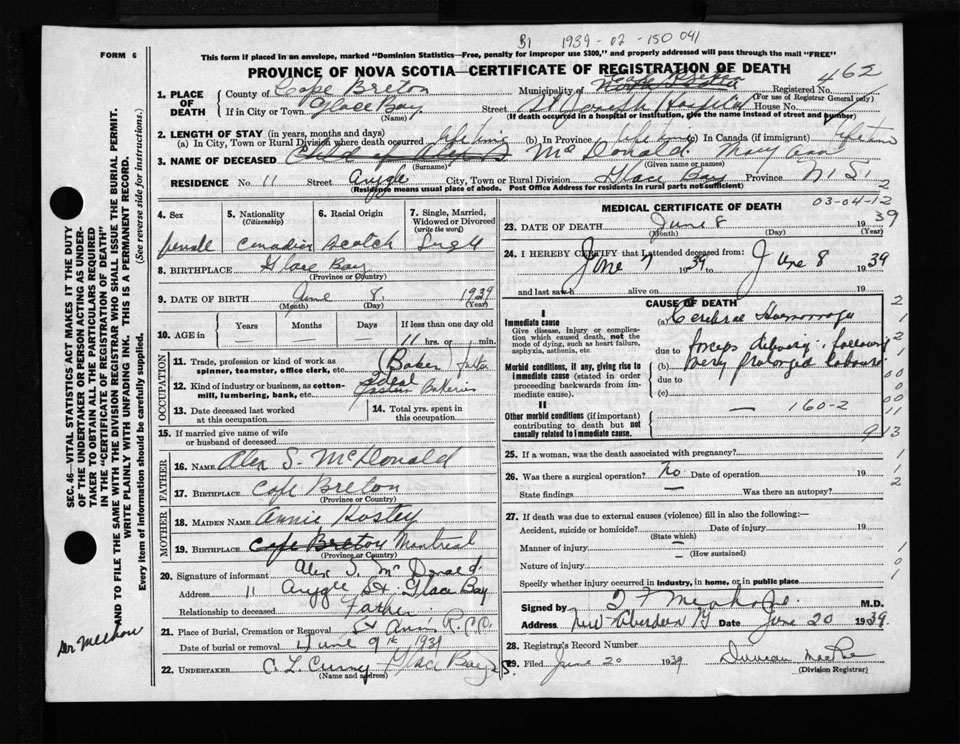 B1 1939-02-150 041
FORM 6
This form if placed in an envelope, marked "Dominion Statistics—Free, penalty for improper use $300," and properly addressed will pass through the mail "FREE"
PROVINCE OF NOVA SCOTIA—CERTIFICATE OF REGISTRATION OF DEATH
1. PLACE OF DEATH
County of Cape Breton
Municipality of Cape Breton Registered No. 462
(For use of Registrar General only)
If in City or Town Glace Bay Street St Joseph Hospital House No.
(Name) (If death occurred in a hospital or institution, give the name instead of street and number)
2. LENGTH OF STAY (in years, months and days)
(a) In City, Town or Rural Division where death occurred life time (b) In Province life time (c) In Canada (if immigrant) life time
3. NAME OF DECEASED McDonald Mary Ann
(Surname) (Given name or names)
RESIDENCE No. 11 Street Argyle City, Town or Rural Division Glace Bay Province N.S.
(Residence means usual place of abode. Post Office Address for residents in rural parts not sufficient)
4. Sex
female
5. Nationality
(Citizenship)
Canadian
6. Racial Origin
Scotch
7. Single, Married, Widowed or Divorced
(write the word)
Single
8. BIRTHPLACE Glace Bay
(Province or Country)
9. DATE OF BIRTH June 8, 1939
(Month) (Day) (Year)
10. AGE in
Years Months Days If less than one day old
11 hrs. or min.
OCCUPATION
11. Trade, profession or kind of work as spinner, teamster, office clerk, etc. (Baker) father
12. Kind of industry or business, as cotton-mill, lumbering, bank, etc. Ideal Bakeries
13. Date deceased last worked at this occupation
14. Total yrs. spent in this occupation
15. If married give name of wife or husband of deceased
FATHER
16. NAME Alex S. McDonald
17. BIRTHPLACE Cape Breton
(Province or Country)
MOTHER
18. MAIDEN NAME Annie
19. BIRTHPLACE Cape Breton Montreal
(Province or Country)
20. Signature of informant Alex S. McDonald
Address 11 Argyle St. Glace Bay
Relationship to deceased Father
21. Place of Burial, Cremation or Removal St Ann R.C.C.
Date of burial or removal June 9th 1939
22. UNDERTAKER C. L. Curry Glace Bay
(Name and address)
MEDICAL CERTIFICATE OF DEATH
03-04-12
23. DATE OF DEATH June 8 1939
(Month) (Day) (Year)
24. I HEREBY CERTIFY that I attended deceased from:
June 7 1939 to June 8 1939
and last saw h alive on 19
CAUSE OF DEATH
I
Immediate cause
Give disease, injury or complication which caused death, not the mode of dying, such as heart failure, asphyxia, asthenia, etc
(a) Cerebral Hemorrhage
due to forceps delivery following
Morbid conditions, if any, giving rise to immediate cause (stated in order proceeding backwards from immediate cause).
(b) very prolonged labour
due to
(c)
II
Other morbid conditions (if important) contributing to death but not causally related to immediate cause.
— 160-2
25. If a woman, was the death associated with pregnancy?
26. Was there a surgical operation? no Date of operation 19
State findings — Was there an autopsy?
27. If death was due to external causes (violence) fill in also the following:—
Accident, suicide or homicide? Date of injury 19
(State which)
Manner of injury —
(How sustained)
Nature of injury —
Specify whether injury occurred in industry, in home, or in public place
Signed by M.D.
Address New Aberdeen Date June 20 1939.
28. Registrar's Record Number
29. Filed June 20 1939 Duncan MacRae
(Division Registrar)
SEC. 46—VITAL STATISTICS ACT MAKES IT THE DUTY OF THE UNDERTAKER OR PERSON ACTING AS UNDERTAKER TO OBTAIN ALL THE PARTICULARS REQUIRED IN THE "CERTIFICATE OF REGISTRATION OF DEATH" AND TO FILE THE SAME WITH THE DIVISION REGISTRAR WHO SHALL ISSUE THE BURIAL PERMIT.
WRITE PLAINLY WITH UNFADING INK. THIS IS A PERMANENT RECORD.
Every item of information should be carefully supplied. (See reverse side for instructions.)